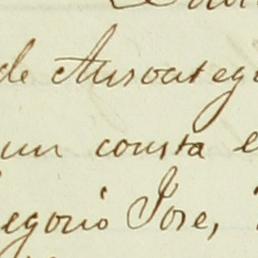 de Ansoategu
un consta e
egorio Jose,